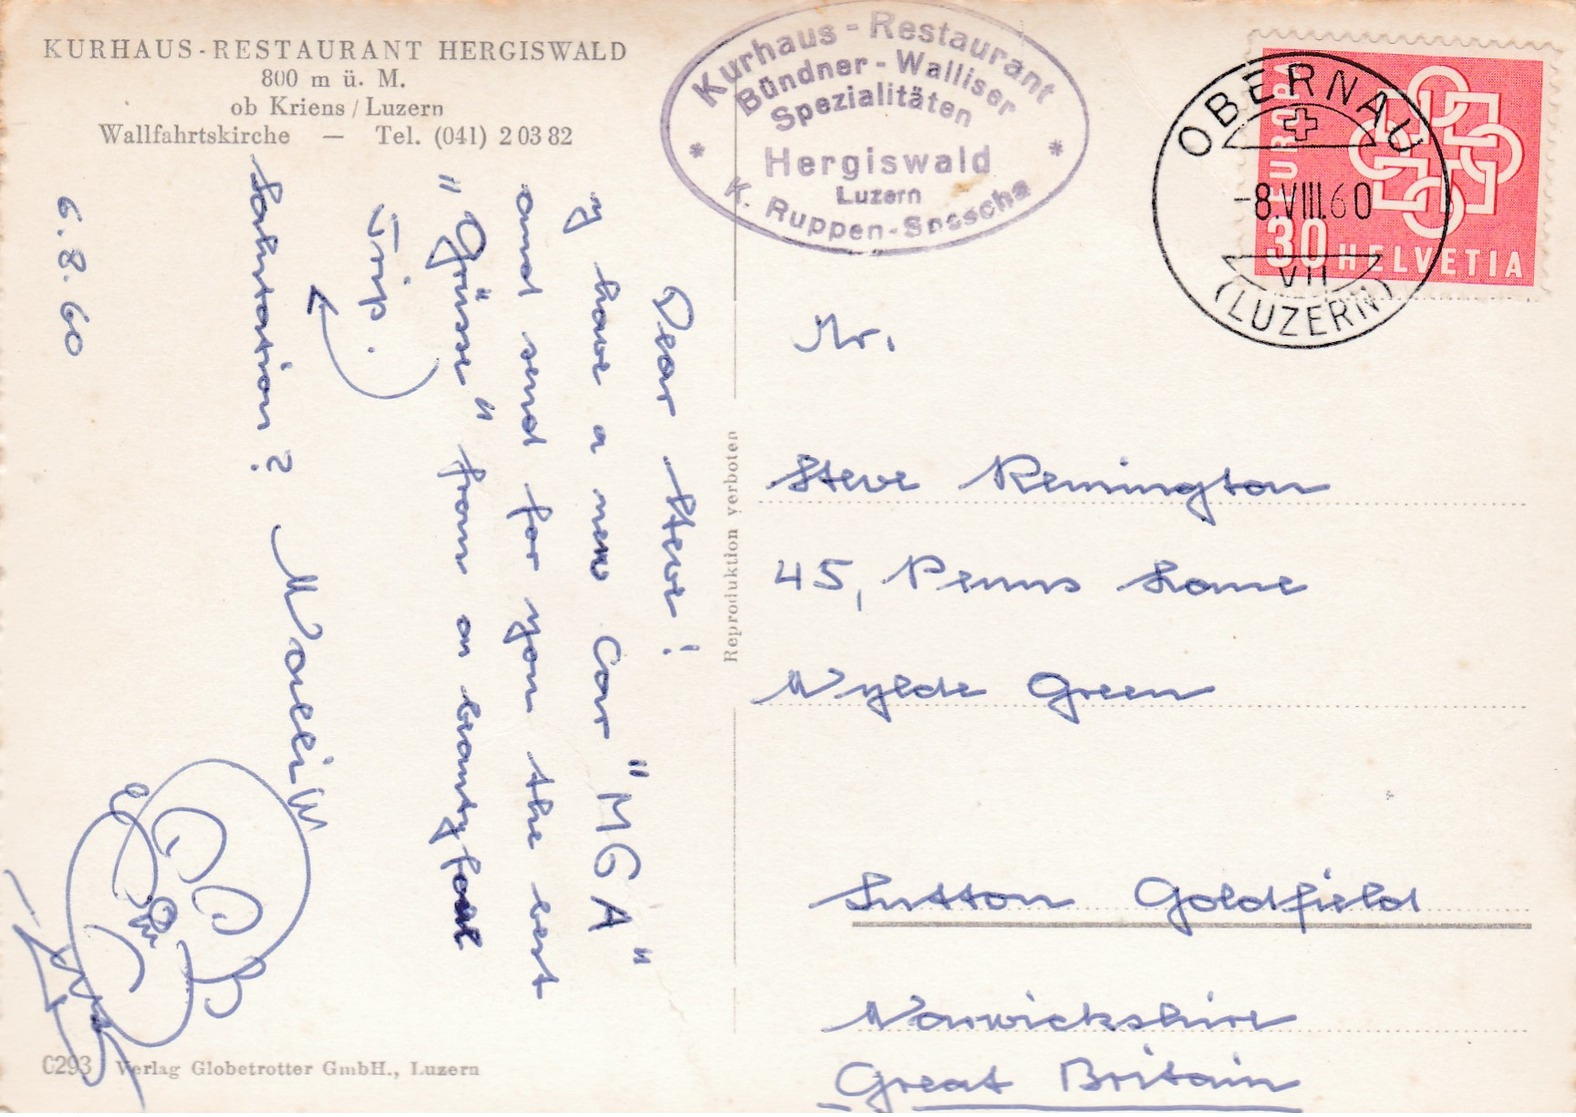 KURHAUS-RESTAURANT HERGISWALD
800 m ü. M.
ob Kriens / Luzern
Wallfahrtskirche — Tel. (041) 2 03 82
Kurhaus - Restaurant
Bündner - Walliser
Spezialitäten
* Hergiswald *
Luzern
K. Ruppen-
EUROPA
30 HELVETIA
OBERNAU
-8.VIII.60
VII
(LUZERN)
6.8.60
Dear Steve!
I have a new car "MGA"
and send for you the best
"Grüsse" from a beautyfoll
Trip.
Salutation?
Mr.
Steve Remington
45, Penns Lane
Wylde Green
Sutton Goldfield
Warwickshire
Great Britain
Reproduktion verboten
C293 Verlag Globetrotter GmbH., Luzern